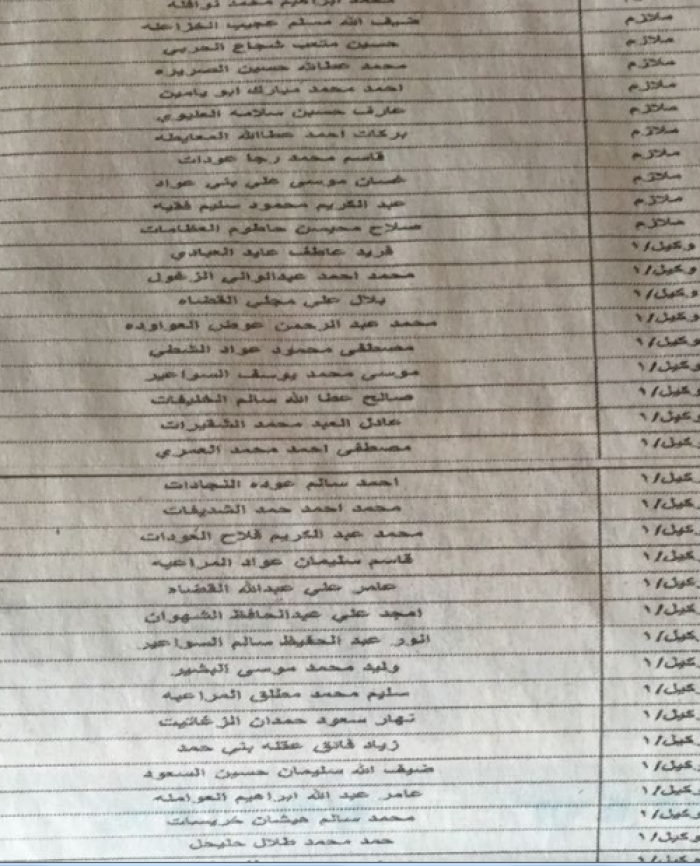 محمد ابراهيم محمد نوافله
ملازم ضيف الله مسلم عجيب الخزاعله
ملازم حسين متعب شجاع الحربي
ملازم محمد عطالله حسين الصريره
ملازم احمد محمد مبارك ابو يامين
ملازم عارف حسين سلامه العليوي
ملازم بركات احمد عطاالله المعايطه
ملازم قاسم محمد رجا عودات
ملازم غسان موسى علي بني عواد
ملازم عبد الكريم محمود سليم فقيه
ملازم صلاح محيسن حاطوم العظامات
وكيل/١ فريد عاطف عايد العبادي
وكيل/١ محمد احمد عبدالوالي الزغول
وكيل/١ بلال علي مجلي القضاه
وكيل/١ محمد عبد الرحمن عوض العواوده
وكيل/١ مصطفى محمود عواد الشطي
وكيل/١ موسى محمد يوسف السواعير
وكيل/١ صالح عطا الله سالم الخليفات
وكيل/١ عادل العبد محمد الشقيرات
وكيل/١ مصطفى احمد محمد العمري
وكيل/١ احمد سالم عوده النجادات
وكيل/١ محمد احمد حمد الشديفات
وكيل/١ محمد عبد الكريم فلاح العودات
وكيل/١ قاسم سليمان عواد المراعيه
وكيل/١ عامر علي عبدالله القضاه
وكيل/١ امجد علي عبدالحافظ الشهوان
وكيل/١ انور عبد الحفيظ سالم السواعير
وكيل/١ وليد محمد موسى البشير
وكيل/١ سليم محمد مطلق المراعيه
وكيل/١ نهار سعود حمدان الزغاتيت
وكيل/١ زياد فائق عقله بني حمد
وكيل/١ ضيف الله سليمان حسين السعود
وكيل/١ عامر عبد الله ابراهيم العوامله
وكيل/١ محمد سالم هيشان خريسات
وكيل/١ حمد محمد طلال حليحل